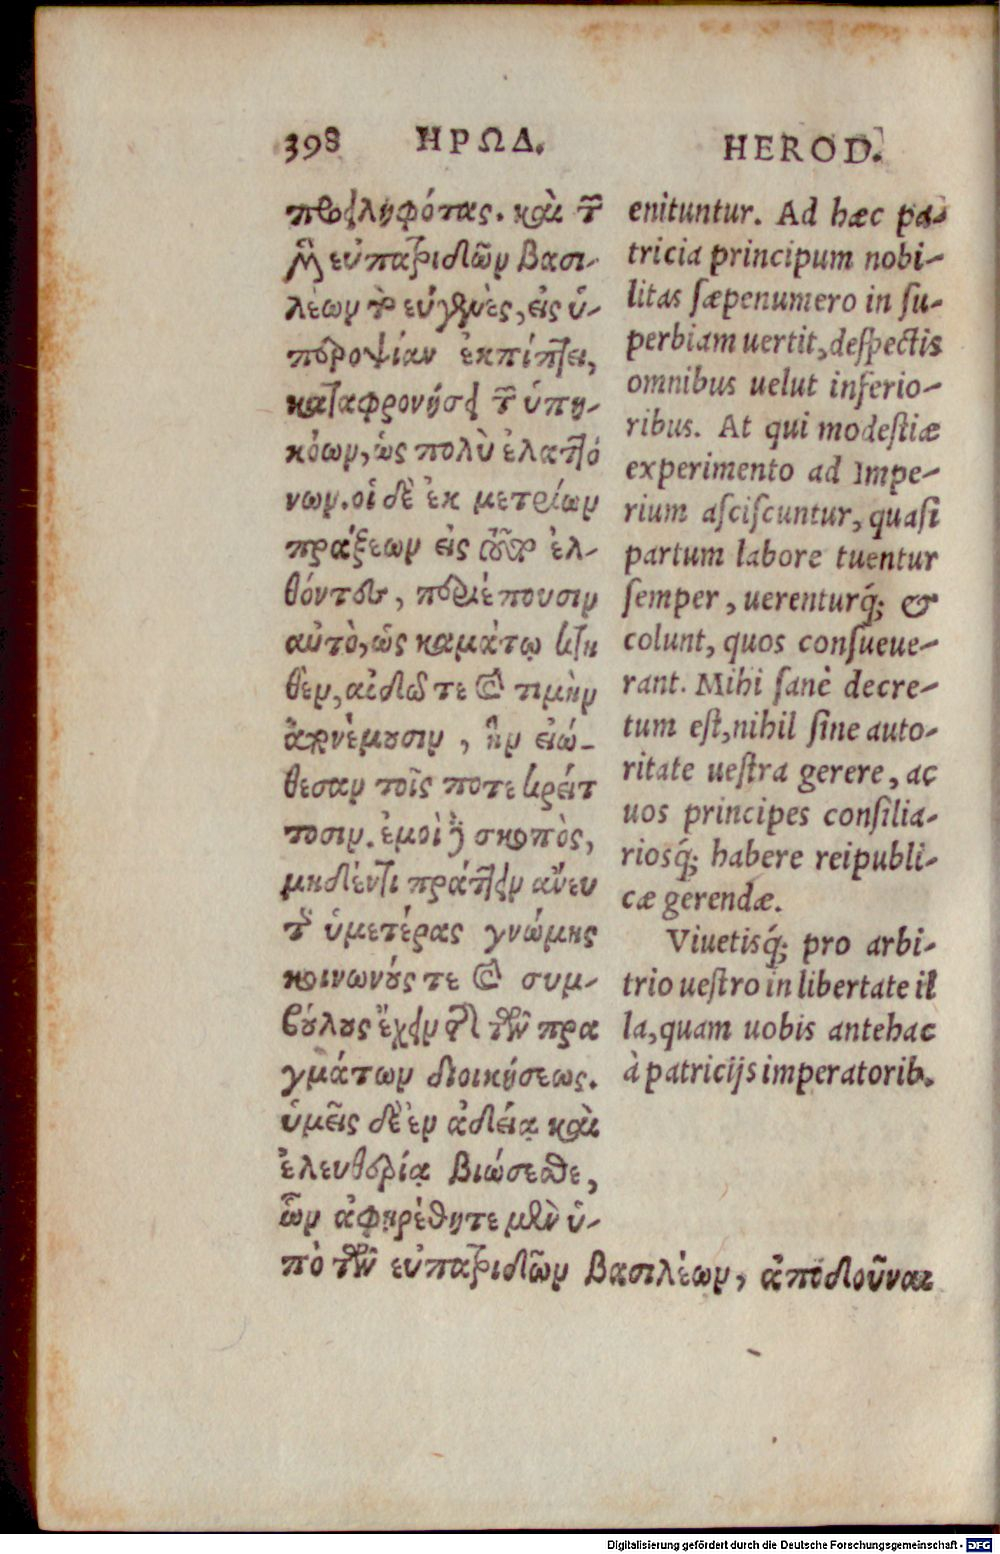 398 ΗΡΩΔ. HEROD.
προειληφότας. καὶ τῶν
μὲν εὐπατριδῶν βασι-
λέων τὸ εὐγενὲς, εἰς ὑ-
περοψίαν ἐκπίπτει,
καταφρονήσει τῶν ὑπη-
κόων, ὡς πολὺ ἐλαττό
νων. οἱ δὲ ἐκ μετρίων
πράξεων εἰς τοῦτο ἐλ-
θόντες, περιέπουσιν
αὐτὸ, ὡς καμάτῳ κτη
θὲν, αἰδῶ τε καὶ τιμὴν
ἀπονέμουσιν, ἣν εἰώ-
θεσαν τοῖς ποτε κρείτ
τοσιν. ἐμοὶ δὲ σκοπὸς,
μηδέντι πράττειν ἄνευ
τῆς ὑμετέρας γνώμης
κοινωνούς τε καὶ συμ-
βούλους ἔχειν τῆς τῶν πρα
γμάτων διοικήσεως.
ὑμεῖς δὲ ἐν ἀδείᾳ καὶ
ἐλευθερίᾳ βιώσεσθε,
ὧν ἀφῃρέθητε μὲν ὑ-
πὸ τῶν εὐπατριδῶν βασιλέων, ἀποδοῦναι
enituntur. Ad hæc pa-
tricia principum nobi-
litas sæpenumero in su-
perbiam uertit, despectis
omnibus uelut inferio-
ribus. At qui modestiæ
experimento ad Impe-
rium asciscuntur, quasi
partum labore tuentur
semper, uerenturq́; &
colunt, quos consueue-
rant. Mihi sanè decre-
tum est, nihil sine auto-
ritate uestra gerere, ac
uos principes consilia-
riosq́; habere reipubli-
cæ gerendæ.
Viuetisq́; pro arbi-
trio uestro in libertate il
la, quam uobis antehac
à patricijs imperatorib.
Digitalisierung gefördert durch die Deutsche Forschungsgemeinschaft - DFG